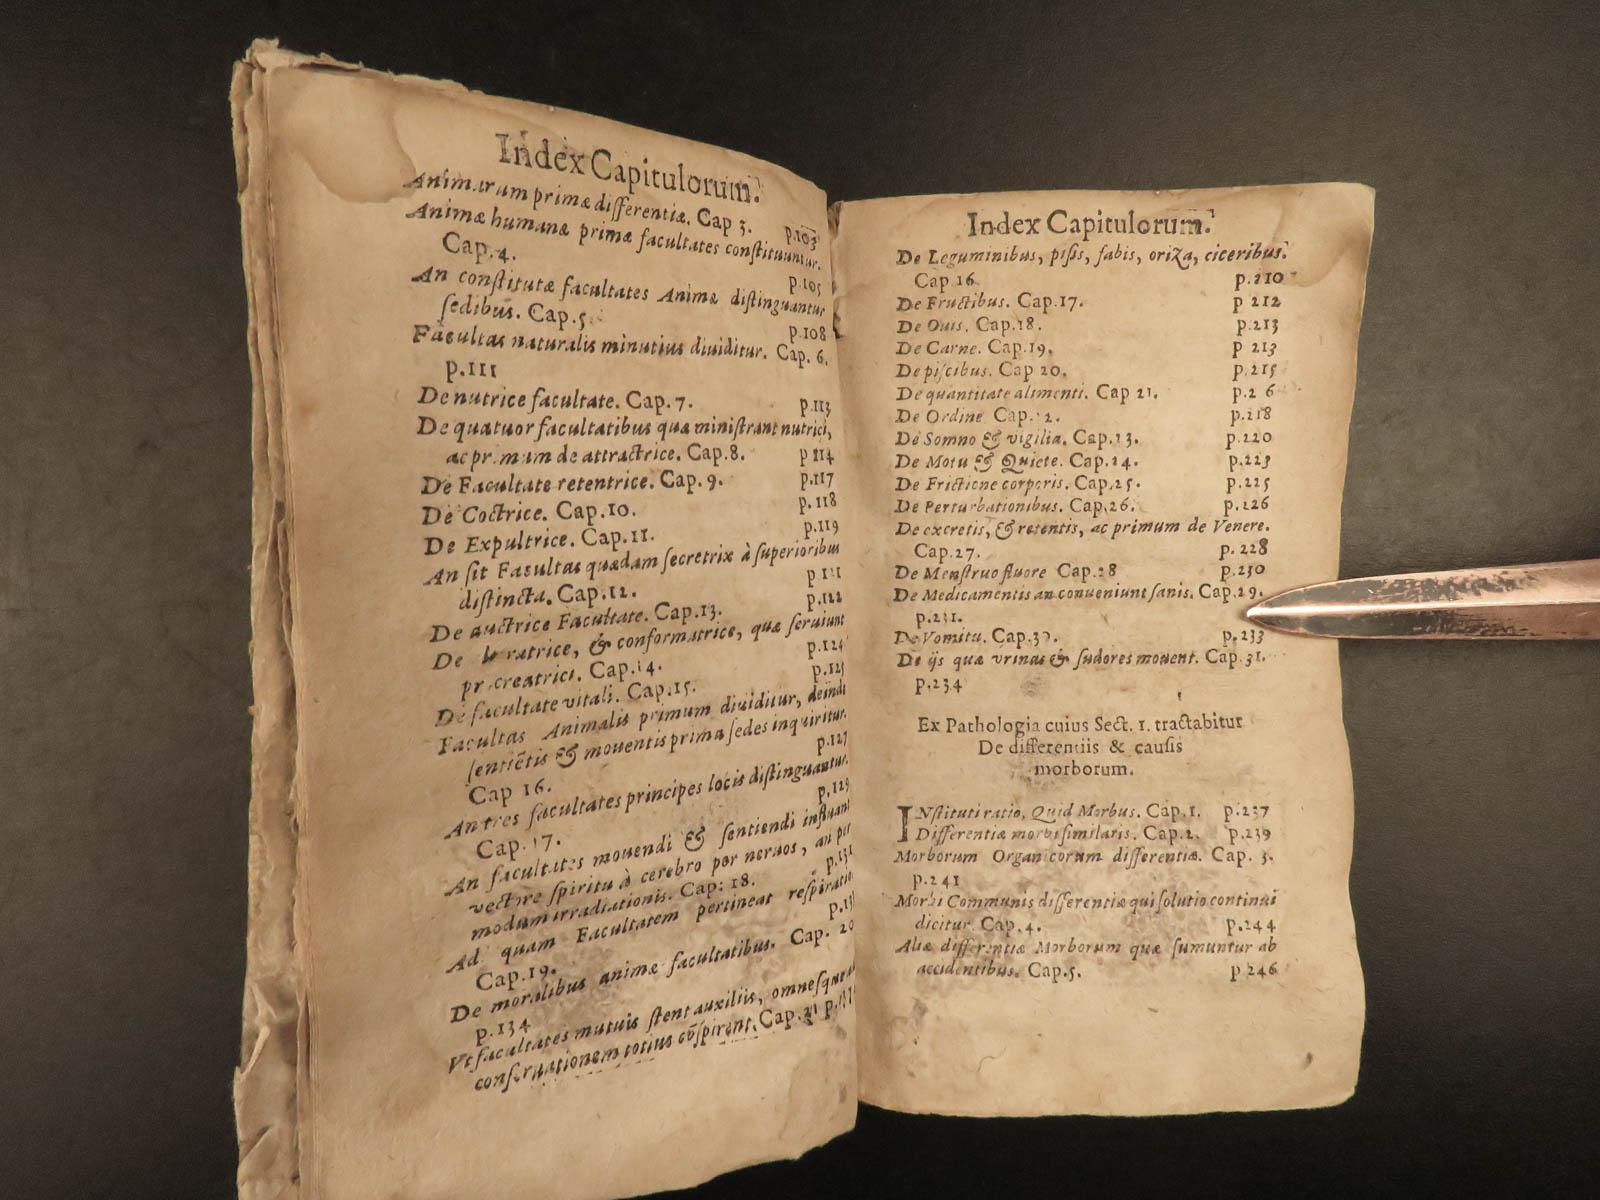 Index Capitulorum.
Animarum primæ differentiæ. Cap 3. p.103
Animæ humanæ primæ facultates constituuntur.
Cap.4. p.105
An constitutæ facultates Animæ distinguantur
sedibus. Cap.5. p.108
Facultas naturalis minutius diuiditur. Cap. 6.
p.111
De nutrice facultate. Cap.7. p.113
De quatuor facultatibus quæ ministrant nutrici,
ac primum de attractrice. Cap.8. p 114
De Facultate retentrice. Cap. 9. p.117
De Coctrice. Cap.10. p.118
De Expultrice. Cap.11. p.119
An sit Facultas quædam secretrix à superioribus
distincta. Cap.12.
De auctrice Facultate. Cap.13. p.122
De &c conformatrice, quæ seruiunt
procreatrici. Cap.14. p.124
De facultate vitali. Cap.15. p.125
Facultas Animalis primum diuiditur, deindi
sentiẽtis & mouentis prima sedes inquiritur.
Cap 16. p.127
An tres facultates principes locis distinguantur.
Cap.17. p.129
An facultates mouendi & sentiendi influant
vectore spiritu à cerebro per neruos, an per
modum irradiationis. Cap: 18. p.131
Ad quam Facultatem pertineat respiratio
Cap.19.
De moralibus animæ facultatibus. Cap. 20
p.134
Vt facultates mutuis stent auxiliis, omnesque ad
conseruationem totius cõspirent. Cap.21
Index Capitulorum.
De Leguminibus, pisis, fabis, oriza, ciceribus.
Cap 16. p.210
De Fructibus. Cap.17. p 212
De Ouis. Cap.18. p.213
De Carne. Cap.19. p 213
De piscibus. Cap 20. p.215
De quantitate alimenti. Cap 21. p.2 6
De Ordine Cap. 2. p.218
De Somno & vigilia. Cap.23. p.220
De Motu & Quiete. Cap.24. p.223
De Frictione corporis. Cap.25. p.225
De Perturbationibus. Cap.26. p.226
De excretis, & retentis, ac primum de Venere.
Cap.27. p.228
De Menstruo fluore Cap.28 p.230
De Medicamentis an conueniunt sanis. Cap.29.
p.231.
De Vomitu. Cap.30. p.233
De ijs quæ vrinas & sudores mouent. Cap.31.
p.234
Ex Pathologia cuius Sect. 1. tractabitur
De differentiis & causis
morborum.
INstituti ratio, Quid Morbus. Cap.1. p.237
Differentiæ morbi similaris. Cap.2. p.239
Morborum Organicorum differentiæ. Cap. 3.
p.241
Morbi Communis differentiæ qui solutio continui
dicitur Cap.4. p.244
Aliæ differentiæ Morborum quæ sumuntur ab
accidentibus. Cap.5. p 246